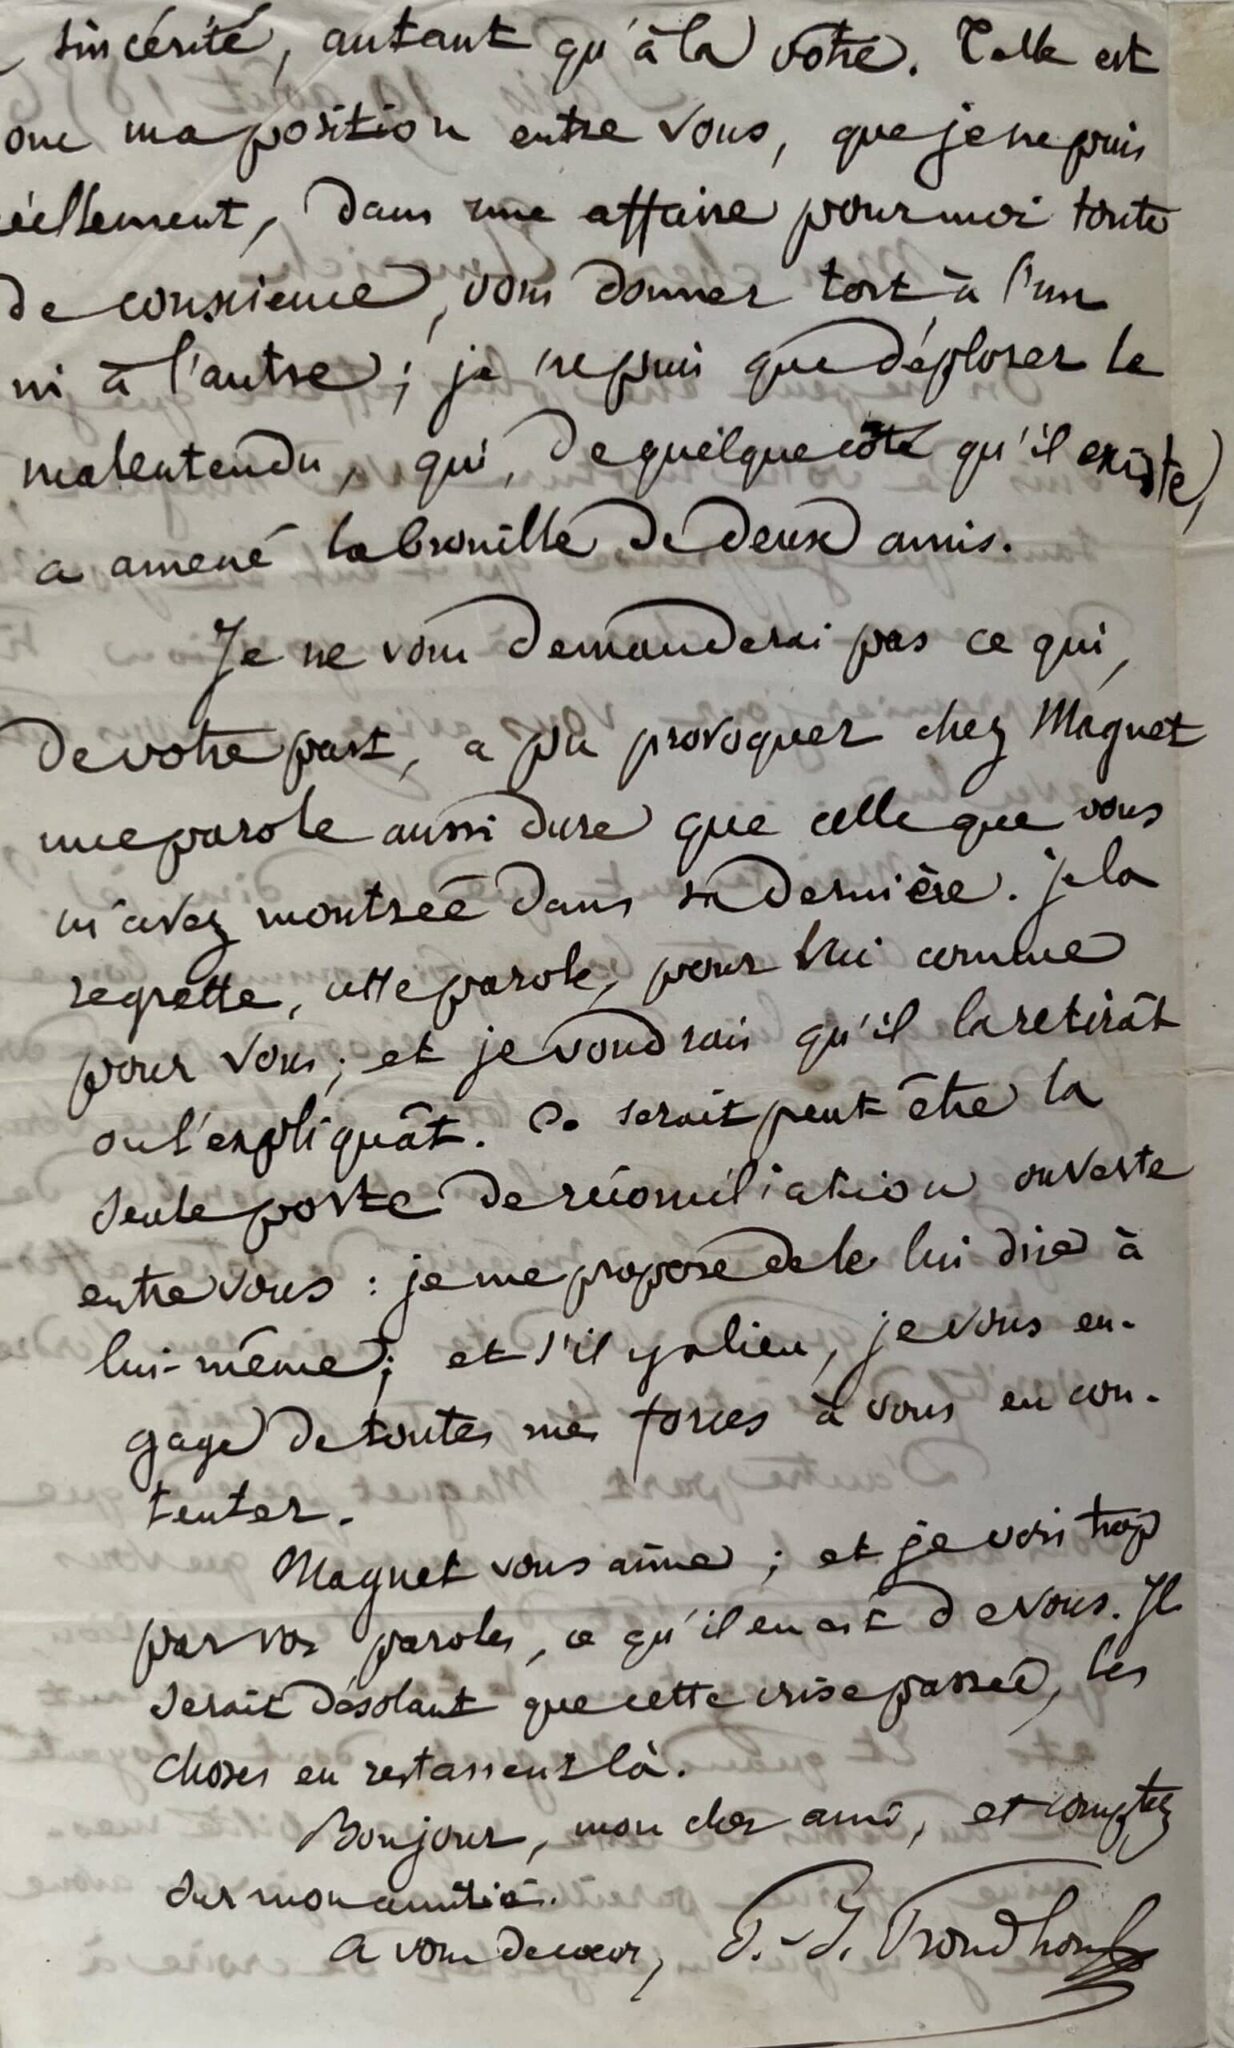 sincérité, autant qu'à la vôtre. Telle est
onc ma position entre vous, que je ne puis
éellement, dans une affaire pour moi toute
de conscience, vous donner tort à l'un
ni à l'autre ; je ne puis que déplorer le
malentendu, qui, de quelque côté qu'il existe,
a amené la brouille de deux amis.
Je ne vous demanderai pas ce qui,
de votre part, a pu provoquer chez Maguet
une parole aussi dure que celle que vous
m'avez montrée dans sa dernière. je la
regrette, cette parole, pour lui comme
pour vous ; et je voudrais qu'il la retirât
ou l'expliquât. Ce serait peut être la
seule porte de réconciliation ouverte
entre vous : je me propose de le lui dire à
lui-même ; et s'il y a lieu, je vous en-
gage de toutes mes forces à vous en con-
tenter.
Maguet vous aime ; et je vois trop
par vos paroles, ce qu'il en est de vous. Il
serait désolant que cette crise passée, les
choses en restassent là.
Bonjour, mon cher ami, et comptez
sur mon amitié.
A vous de cœur, P.-J. Proudhon